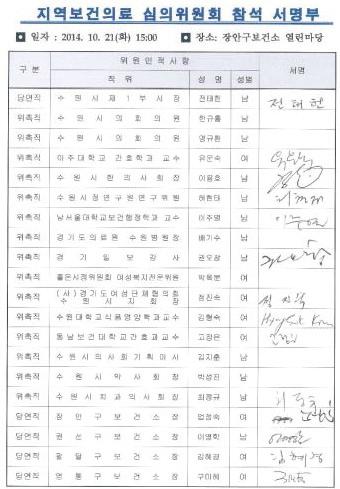 지역보건의료 심의위원회 참석 서명부
● 일자 : 2014. 10. 21(화) 15:00 ● 장소: 장안구보건소 열린마당
구 분 위 원 인 적 사 항 서명
직 위 성 명 성별
당연직 수 원 시 제 1 부 시 장 전태헌 남 전태헌
위촉직 수 원 시 의 회 의 원 한규흠 남
위촉직 수 원 시 의 회 의 원 염규환 남
위촉직 아주대학교 간호학과 교수 유문숙 여
위촉직 수 원 시 한 의 사 회 장 이용호 남
위촉직 수원시정연구원연구위원 허현태 남
위촉직 남서울대학교보건행정학과 교수 이주열 남
위촉직 경기도의료원 수원병원장 배기수 남
위촉직 경 기 일 보 강 사 권오상 남
위촉직 좋은시정위원회 여성복지전문위원 박옥분 여
위촉직 (사)경기도여성단체협의회 수 원 시 지 회 장 정진숙 여
위촉직 수원대학교식품영양학과교수 김현숙 여
위촉직 동남보건대학교간호과교수 고정은 여
위촉직 수원시의사회기획이사 김지훈 남
위촉직 수 원 시 약 사 회 장 박성진 남
위촉직 수원시치과의사회장 최정규 남
당연직 장 안 구 보 건 소 장 엄정숙 여
당연직 권 선 구 보 건 소 장 이영학 남
당연직 팔 달 구 보 건 소 장 김혜경 여
당연직 영 통 구 보 건 소 장 구미혜 여